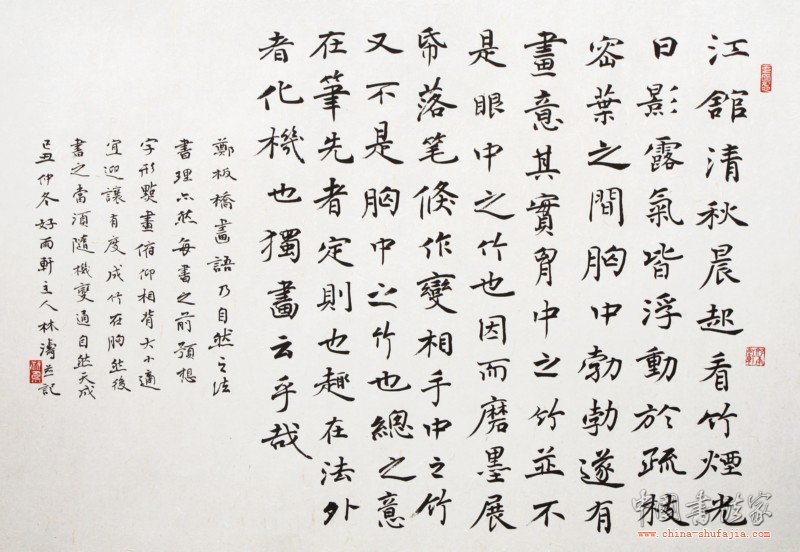 江舘清秋晨起看竹煙光
日影露氣皆浮動於疏枝
密葉之間胸中勃勃遂有
畫意其實胷中之竹並不
是眼中之竹也因而磨墨展
帋落笔倏作變相手中之竹
又不是胸中之竹也總之意
在筆先者定則也趣在法外
者化機也獨畫云乎哉
鄭板橋畫語乃自然之法
書理亦然每書之前預想
字形點畫俯仰相背大小適
宜迎讓有度成竹在胸然後
書之當須隨機變通自然天成
己丑仲冬好雨軒主人林濤並記
中国书法家
www.china-shufajia.com